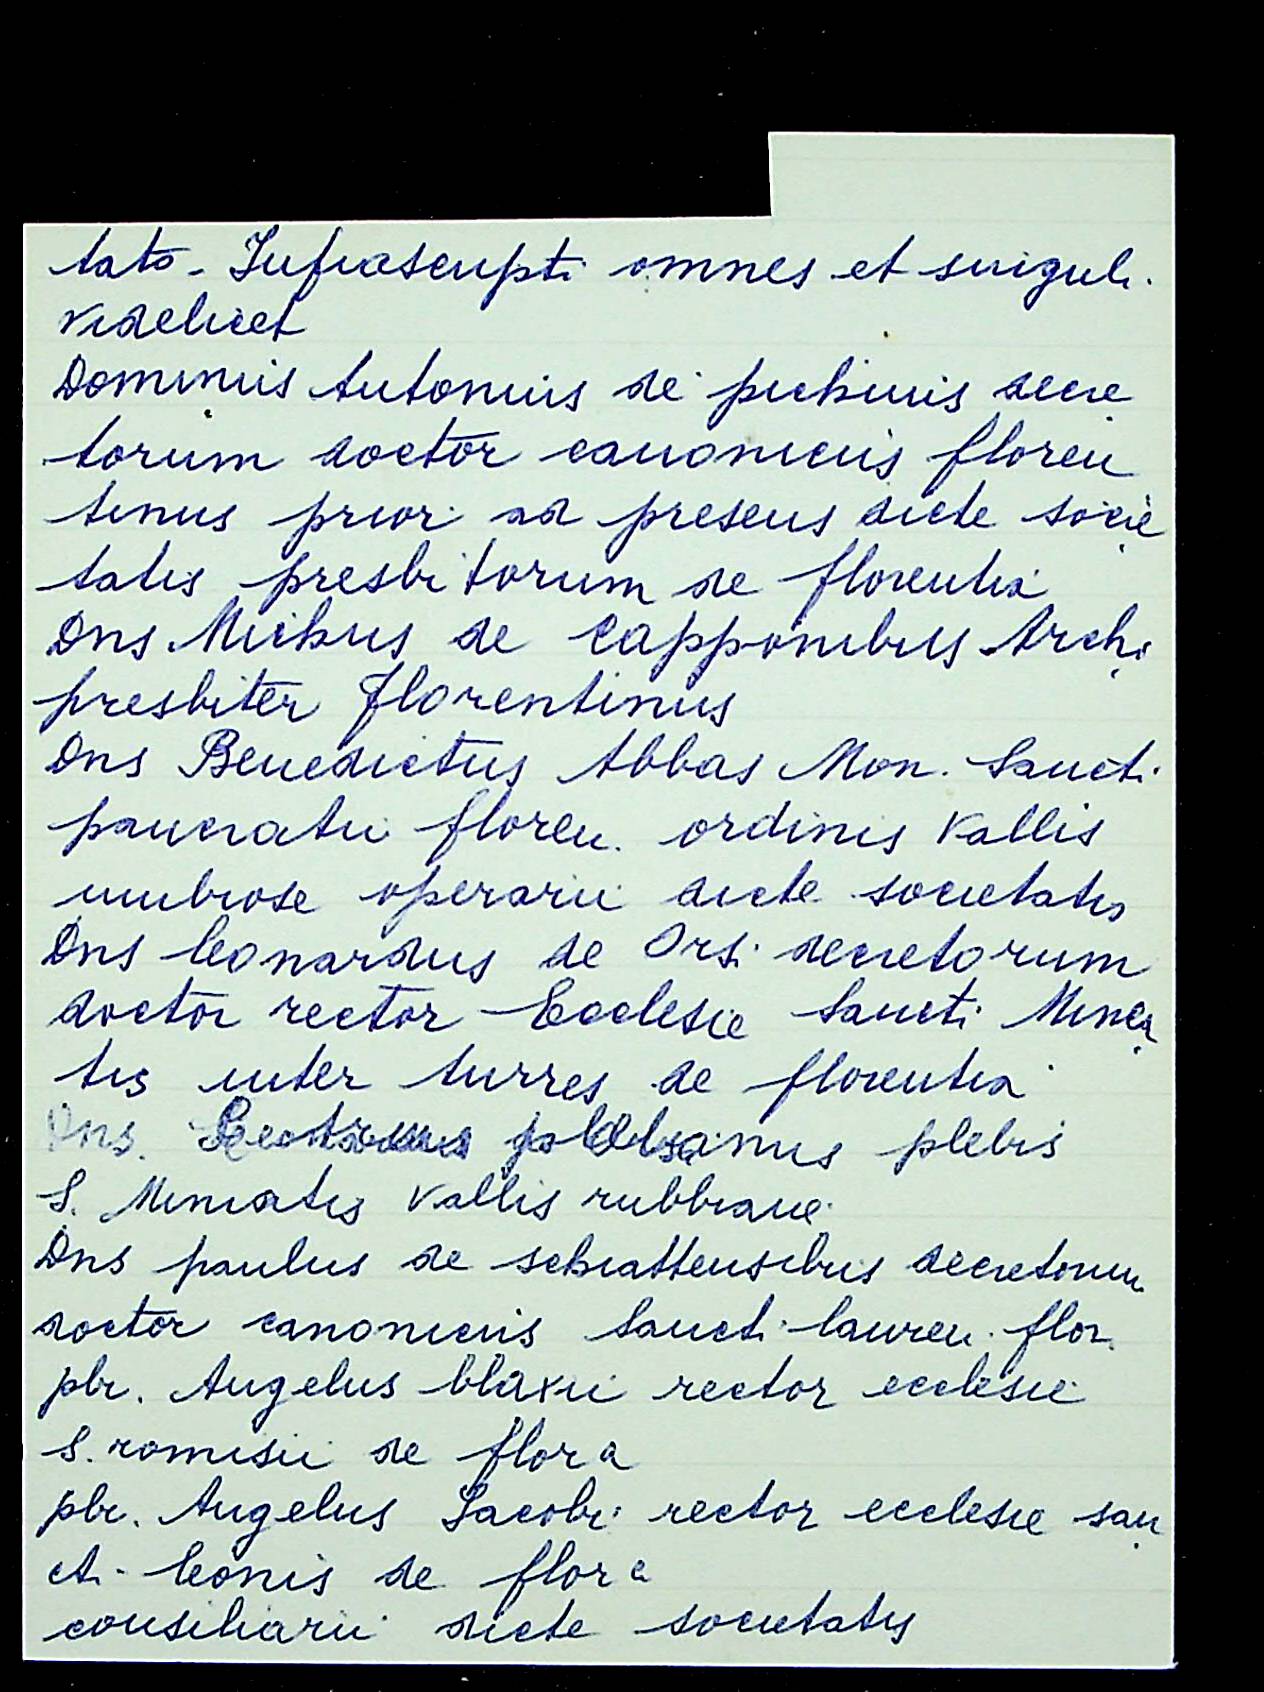 tato - Infrascripti omnes et singuli.
videlicet
Dominus Antonius de pichinis decre
torum doctor canonicus floren
tinus prior ad presens dicte socie
tatis presbitorum de florentia
Dns Michus de Capponibus Archi
presbiter florentinus
Dns Benedictus Abbas Mon. Sancti
pancratii floren. ordinis Vallis
umbrose operarii dicte societatis
Dns leonardus de Orsi decretorum
doctor rector Ecclesie Sancti Minea
tis inter turres de florentia
Dns. plebanus plebis
S. Miniatis Vallis rubbiane
Dns paulus de schiattensibus decretorum
doctor canonicus Sancti lauren. flor.
pbr. Angelus blaxii rector ecclesie
S. romisii de flora
pbr. Angelus Iacobi rector ecclesie san
cti leonis de flora
consiliarii dicte societatis